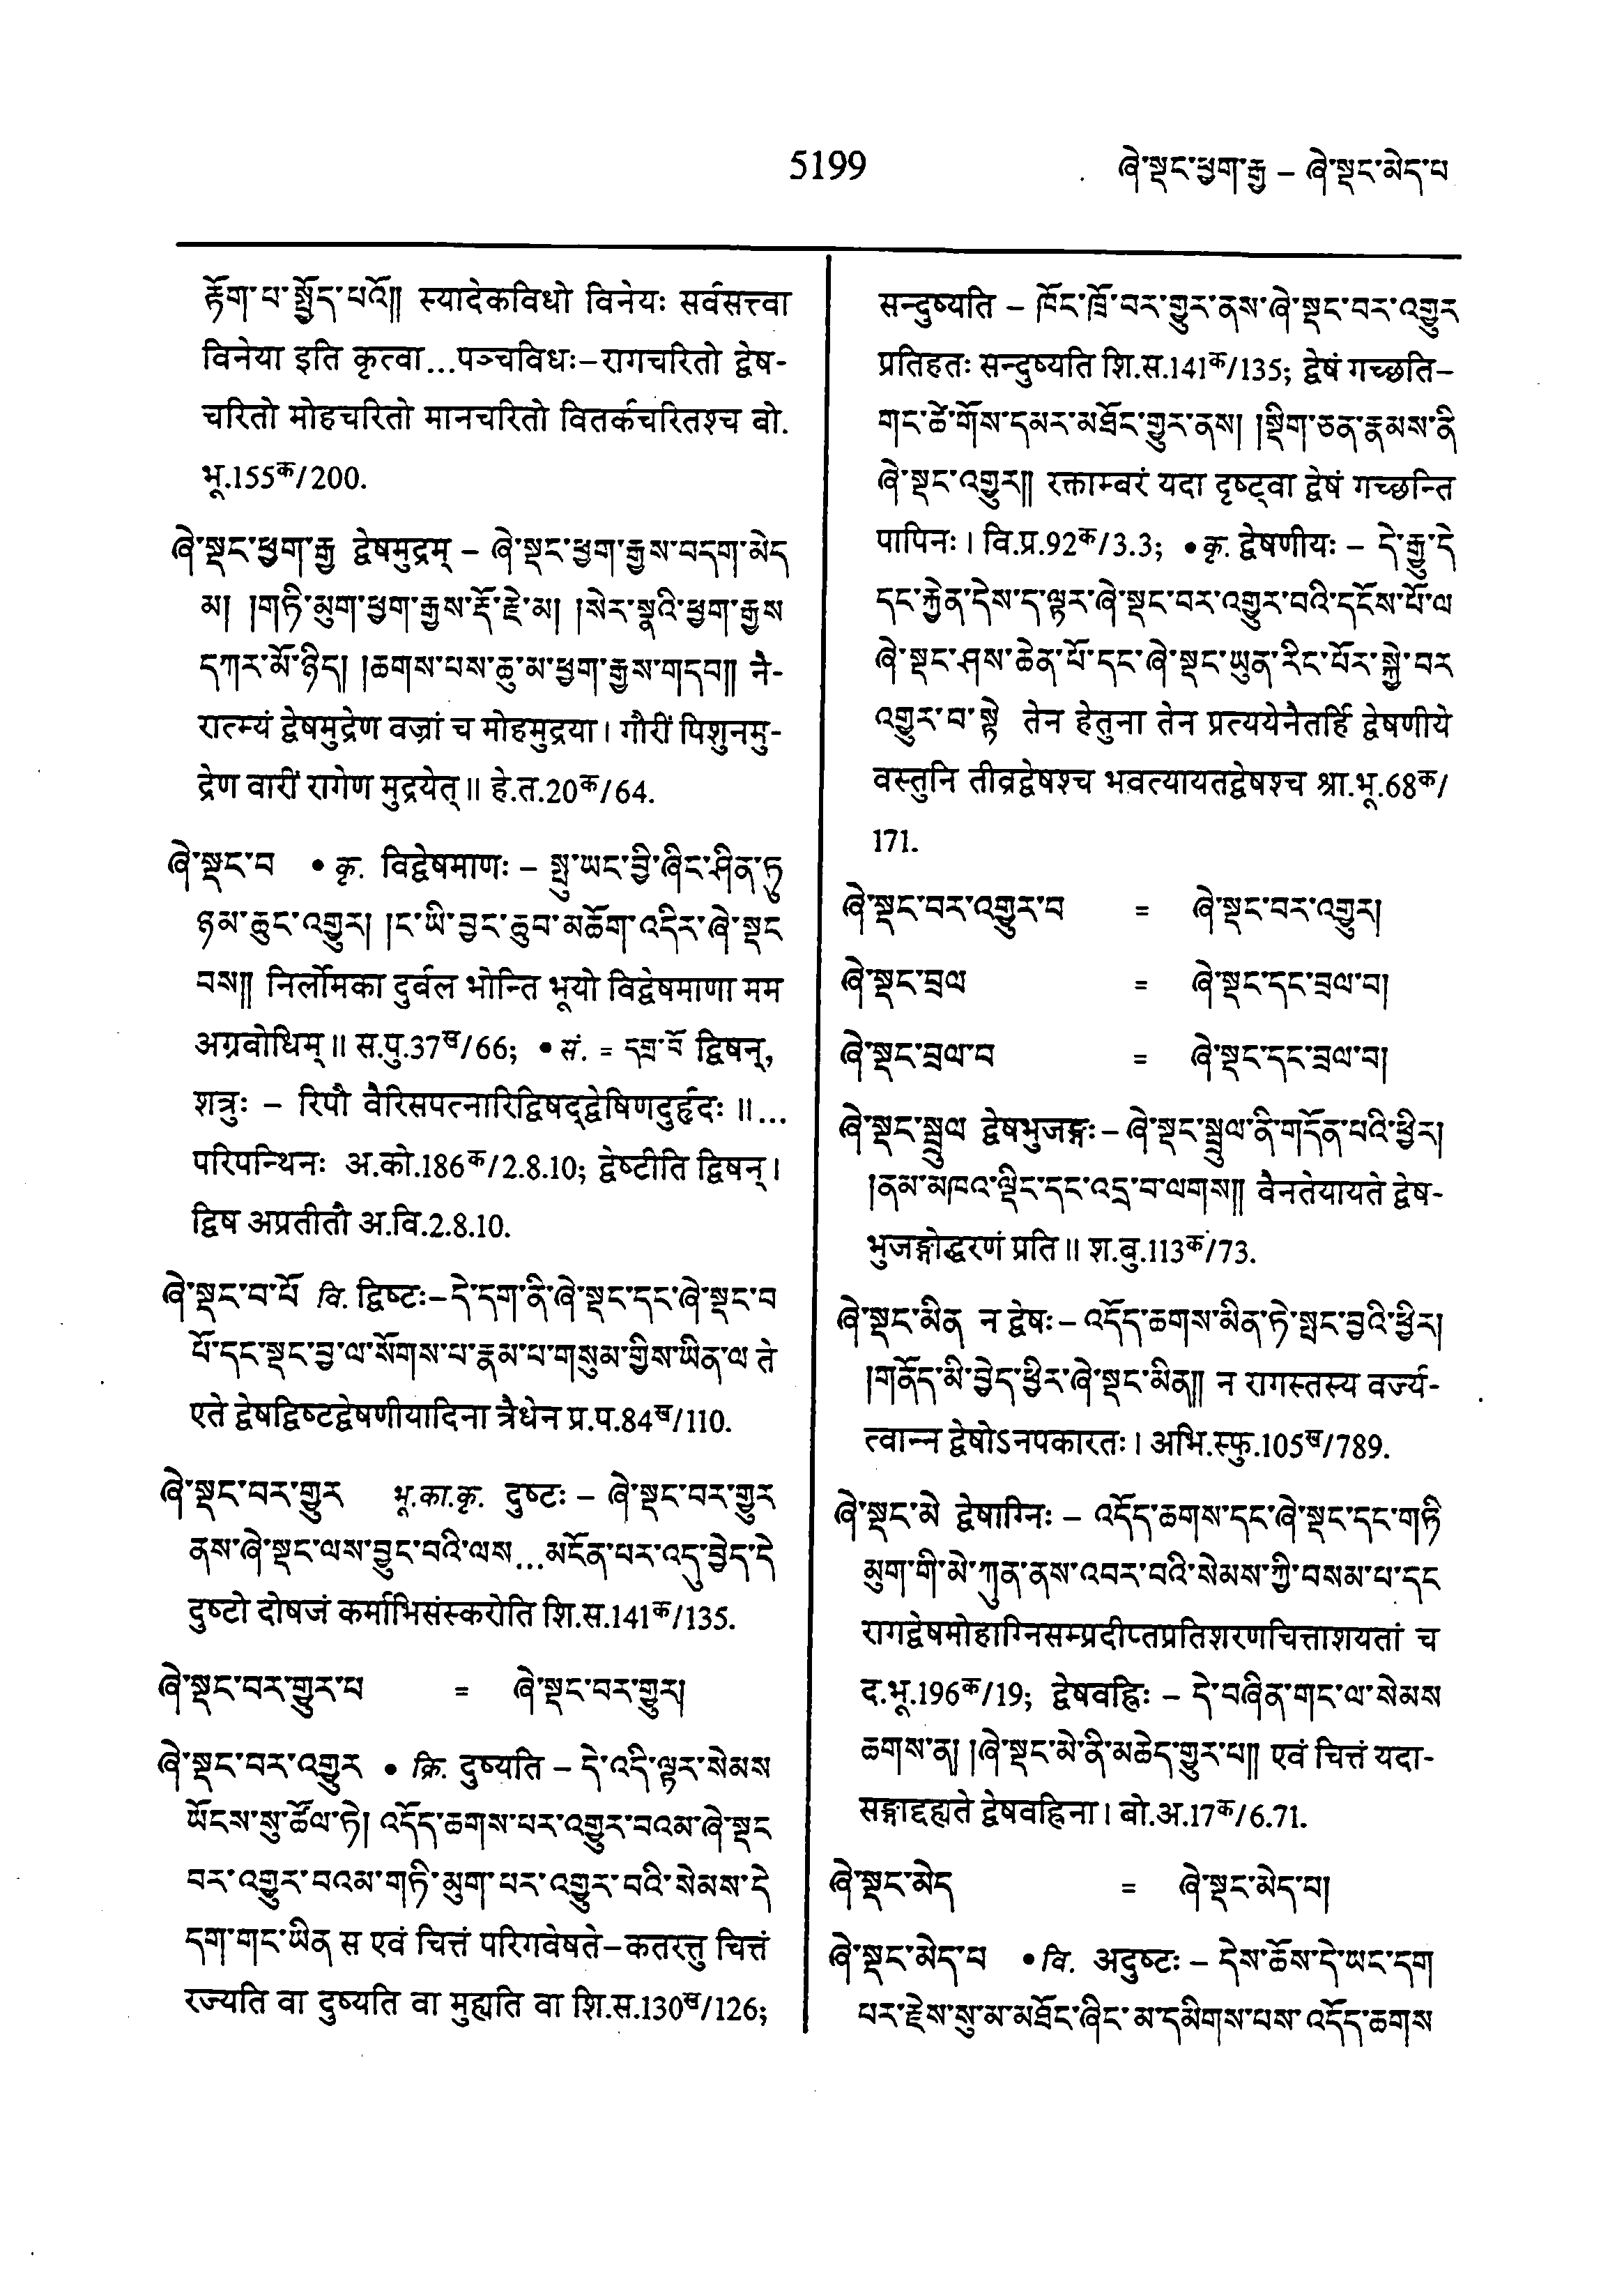 5199
ཞེ་སྡང་ཕྱག་རྒྱ – ཞེ་སྡང་མེད་པ
རྟོག་པ་སྤྱོད་པའོ༎ स्यादेकविधो विनेयः सर्वसत्त्वा
विनेया इति कृत्वा...पञ्चविधः–रागचरितो द्वेष-
चरितो मोहचरितो मानचरितो वितर्कचरितश्च बो.
भू.155क/200.
ཞེ་སྡང་ཕྱག་རྒྱ द्वेषमुद्रम् – ཞེ་སྡང་ཕྱག་རྒྱས་བདག་མེད
མ། །གཏི་མུག་ཕྱག་རྒྱས་རྡོ་རྗེ་མ། །སེར་སྣའི་ཕྱག་རྒྱས
དཀར་མོ་ཉིད། །ཆགས་པས་ཆུ་མ་ཕྱག་རྒྱས་གདབ༎ नै-
रात्म्यं द्वेषमुद्रेण वज्रां च मोहमुद्रया। गौरीं पिशुनमु-
द्रेण वारीं रागेण मुद्रयेत्॥ हे.त.20क/64.
ཞེ་སྡང་བ • कृ. विद्वेषमाणः – སྤུ་ཡང་བྱི་ཞིང་ཤིན་ཏུ
ཉམ་ཆུང་འགྱུར། །ང་ཡི་བྱང་ཆུབ་མཆོག་འདིར་ཞེ་སྡང
བས༎ निर्लोमका दुर्बल भोन्ति भूयो विद्वेषमाणा मम
अग्रबोधिम्॥ स.पु.37ख/66; • सं. = དགྲ་བོ द्विषन्,
शत्रुः – रिपौ वैरिसपत्नारिद्विषद्द्वेषिणदुर्हृदः॥...
परिपन्थिनः अ.को.186क/2.8.10; द्वेष्टीति द्विषन्।
द्विष अप्रतीतौ अ.वि.2.8.10.
ཞེ་སྡང་བ་པོ वि. द्विष्टः–དེ་དག་ནི་ཞེ་སྡང་དང་ཞེ་སྡང་བ
པོ་དང་སྡང་བྱ་ལ་སོགས་པ་རྣམ་པ་གསུམ་གྱིས་ཡིན་ལ ते
एते द्वेषद्विष्टद्वेषणीयादिना त्रैधेन प्र.प.84ख/110.
ཞེ་སྡང་བར་གྱུར भू.का.कृ. दुष्टः – ཞེ་སྡང་བར་གྱུར
ནས་ཞེ་སྡང་ལས་བྱུང་བའི་ལས...མངོན་པར་འདུ་བྱེད་དེ
दुष्टो दोषजं कर्माभिसंस्करोति शि.स.141क/135.
ཞེ་སྡང་བར་གྱུར་པ = ཞེ་སྡང་བར་གྱུར།
ཞེ་སྡང་བར་འགྱུར • क्रि. दुष्यति – དེ་འདི་ལྟར་སེམས
ཡོངས་སུ་ཚོལ་ཏེ། འདོད་ཆགས་པར་འགྱུར་བའམ་ཞེ་སྡང
བར་འགྱུར་བའམ་གཏི་མུག་པར་འགྱུར་བའི་སེམས་དེ
དག་གང་ཡིན स एवं चित्तं परिगवेषते–कतरत्तु चित्तं
रज्यति वा दुष्यति वा मुह्यति वा शि.स.130ख/126;
सन्दुष्यति – ཁོང་ཁྲོ་བར་གྱུར་ནས་ཞེ་སྡང་བར་འགྱུར
प्रतिहतः सन्दुष्यति शि.स.141क/135; द्वेषं गच्छति–
གང་ཚེ་གོས་དམར་མཐོང་གྱུར་ནས། །སྡིག་ཅན་རྣམས་ནི
ཞེ་སྡང་འགྱུར༎ रक्ताम्बरं यदा दृष्ट्वा द्वेषं गच्छन्ति
पापिनः। वि.प्र.92क/3.3; • कृ. द्वेषणीयः – དེ་རྒྱུ་དེ
དང་རྐྱེན་དེས་ད་ལྟར་ཞེ་སྡང་བར་འགྱུར་བའི་དངོས་པོ་ལ
ཞེ་སྡང་ཤས་ཆེན་པོ་དང་ཞེ་སྡང་ཡུན་རིང་པོར་སྐྱེ་བར
འགྱུར་བ་སྟེ तेन हेतुना तेन प्रत्ययेनैतर्हि द्वेषणीये
वस्तुनि तीव्रद्वेषश्च भवत्यायतद्वेषश्च श्रा.भू.68क/
171.
ཞེ་སྡང་བར་འགྱུར་བ = ཞེ་སྡང་བར་འགྱུར།
ཞེ་སྡང་བྲལ = ཞེ་སྡང་དང་བྲལ་བ།
ཞེ་སྡང་བྲལ་བ = ཞེ་སྡང་དང་བྲལ་བ།
ཞེ་སྡང་སྦྲུལ द्वेषभुजङ्गः–ཞེ་སྡང་སྦྲུལ་ནི་གདོན་པའི་ཕྱིར།
།ནམ་མཁའ་ལྡིང་དང་འདྲ་བ་ལགས༎ वैनतेयायते द्वेष-
भुजङ्गोद्धरणं प्रति॥ श.बु.113क/73.
ཞེ་སྡང་མིན न द्वेषः–འདོད་ཆགས་མིན་ཏེ་སྤང་བྱའི་ཕྱིར།
།གནོད་མི་བྱེད་ཕྱིར་ཞེ་སྡང་མིན༎ न रागस्तस्य वर्ज्य-
त्वान्न द्वेषोऽनपकारतः। अभि.स्फु.105ख/789.
ཞེ་སྡང་མེ द्वेषाग्निः – འདོད་ཆགས་དང་ཞེ་སྡང་དང་གཏི
མུག་གི་མེ་ཀུན་ནས་འབར་བའི་སེམས་ཀྱི་བསམ་པ་དང
रागद्वेषमोहाग्निसम्प्रदीप्तप्रतिशरणचित्ताशयतां च
द.भू.196क/19; द्वेषवह्निः – དེ་བཞིན་གང་ལ་སེམས
ཆགས་ན། །ཞེ་སྡང་མེ་ནི་མཆེད་གྱུར་པ༎ एवं चित्तं यदा-
सङ्गाद्दह्यते द्वेषवह्निना। बो.अ.17क/6.71.
ཞེ་སྡང་མེད = ཞེ་སྡང་མེད་པ།
ཞེ་སྡང་མེད་པ • वि. अदुष्टः – དེས་ཆོས་དེ་ཡང་དག
པར་རྗེས་སུ་མ་མཐོང་ཞིང་མ་དམིགས་པས་འདོད་ཆགས